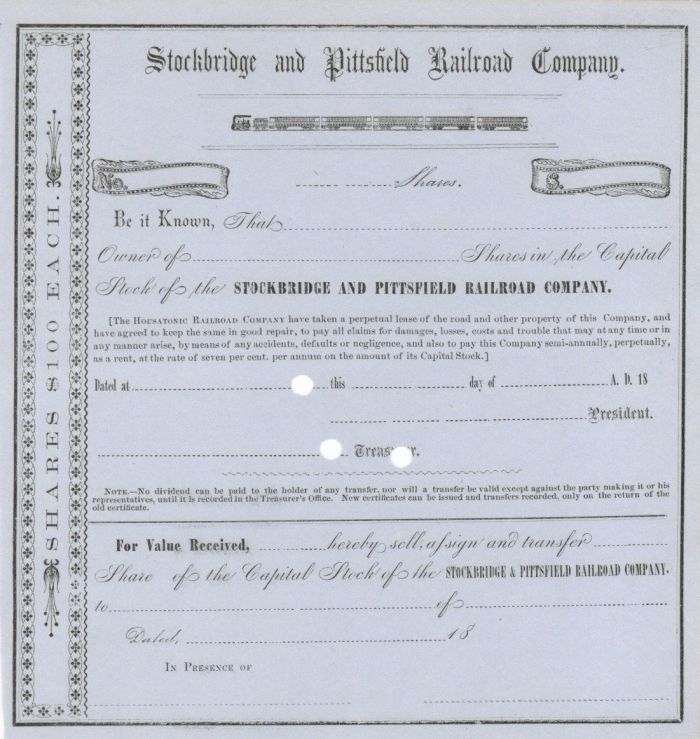 Stockbridge and Pittsfield Railroad Company.
SHARES $100 EACH.
No.
Shares.
S.
Be it Known, That
Owner of Shares in the Capital
Stock of the STOCKBRIDGE AND PITTSFIELD RAILROAD COMPANY.
[The Housatonic Railroad Company have taken a perpetual lease of the road and other property of this Company, and
have agreed to keep the same in good repair, to pay all claims for damages, losses, costs and trouble that may at any time or in
any manner arise, by means of any accidents, defaults or negligence, and also to pay this Company semi-annually, perpetually,
as a rent, at the rate of seven per cent. per annum on the amount of its Capital Stock.]
Dated at this day of A. D. 18
President.
Treasurer.
Note.—No dividend can be paid to the holder of any transfer, nor will a transfer be valid except against the party making it or his
representatives, until it is recorded in the Treasurer's Office. New certificates can be issued and transfers recorded, only on the return of the
old certificate.
For Value Received, hereby sell, assign and transfer
Share of the Capital Stock of the STOCKBRIDGE & PITTSFIELD RAILROAD COMPANY.
to of
Dated, 18
In Presence of